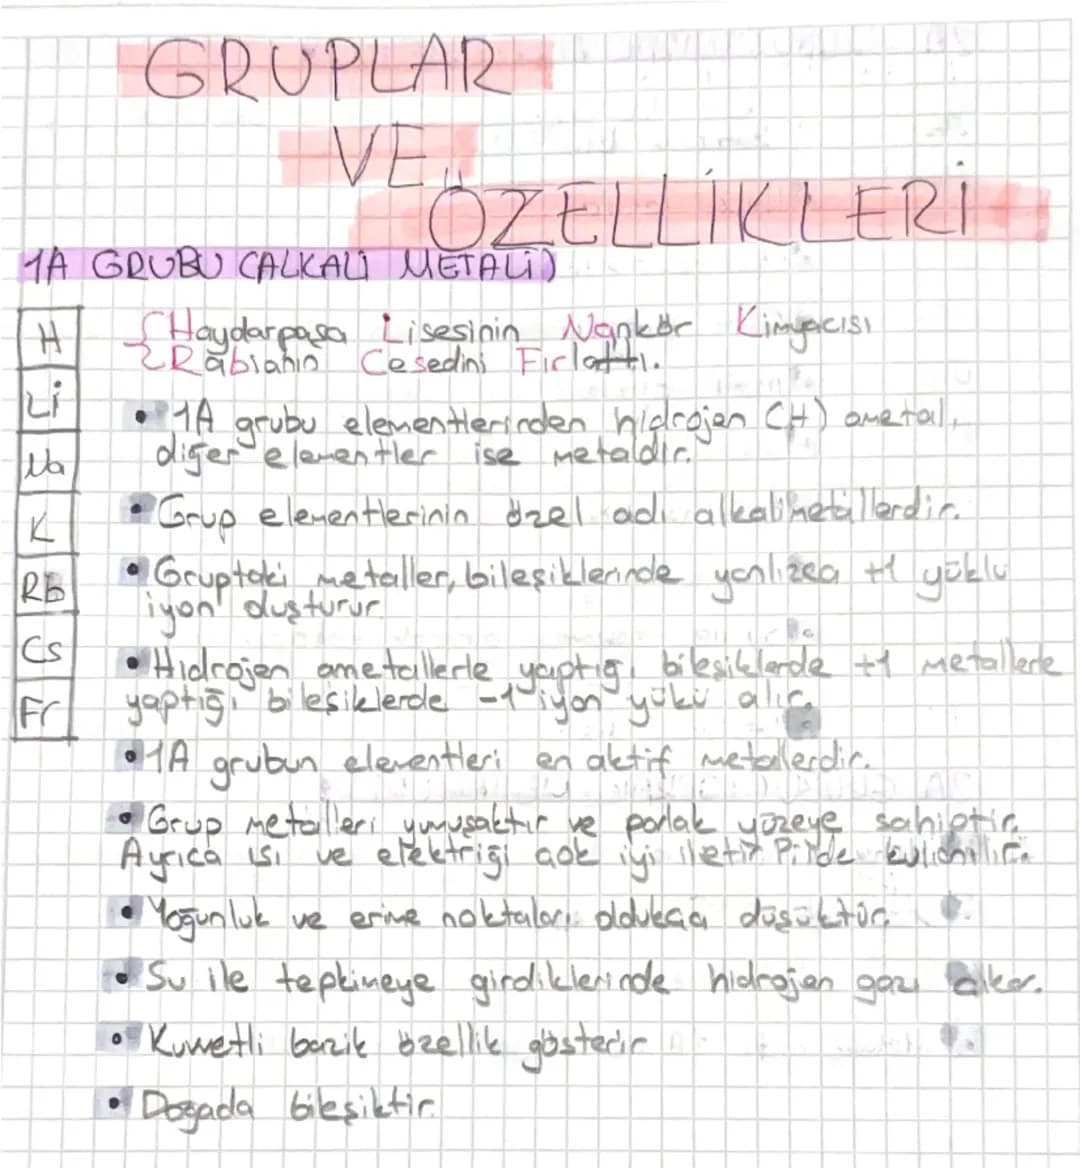 GRUPLAR
VE
ÖZELLİKLERİ
1A GRUBU (ALKALİ METALİ)
H
Li
Na
K
RB
Cs
Fr
Haydarpaşa Lisesinin Nankör Kimyacısı
Rabianın Cesedini Fırlattı.
• 1A grubu elementlerinden hidrojen (H) ametal,
diğer elementler ise metaldir.
• Grup elementlerinin özel adı alkalimetallerdir.
• Gruptaki metaller, bileşiklerinde yanlızca +1 yüklü
iyon oluşturur.
• Hidrojen ametallerle yaptığı bileşiklerde +1 metallerle
yaptığı bileşiklerde -1 iyon yükü alır.
• 1A grubun elementleri en aktif metallerdir.
• Grup metalleri yumuşaktır ve parlak yüzeye sahiptir.
Ayrıca ısı ve elektriği çok iyi iletir Pilde kullanılır.
• Yoğunluk ve erime noktaları oldukça düşüktür.
• Su ile tepkimeye girdiklerinde hidrojen gazı çıkar.
• Kuvvetli bazik özellik gösterir
• Doğada bileşiktir.